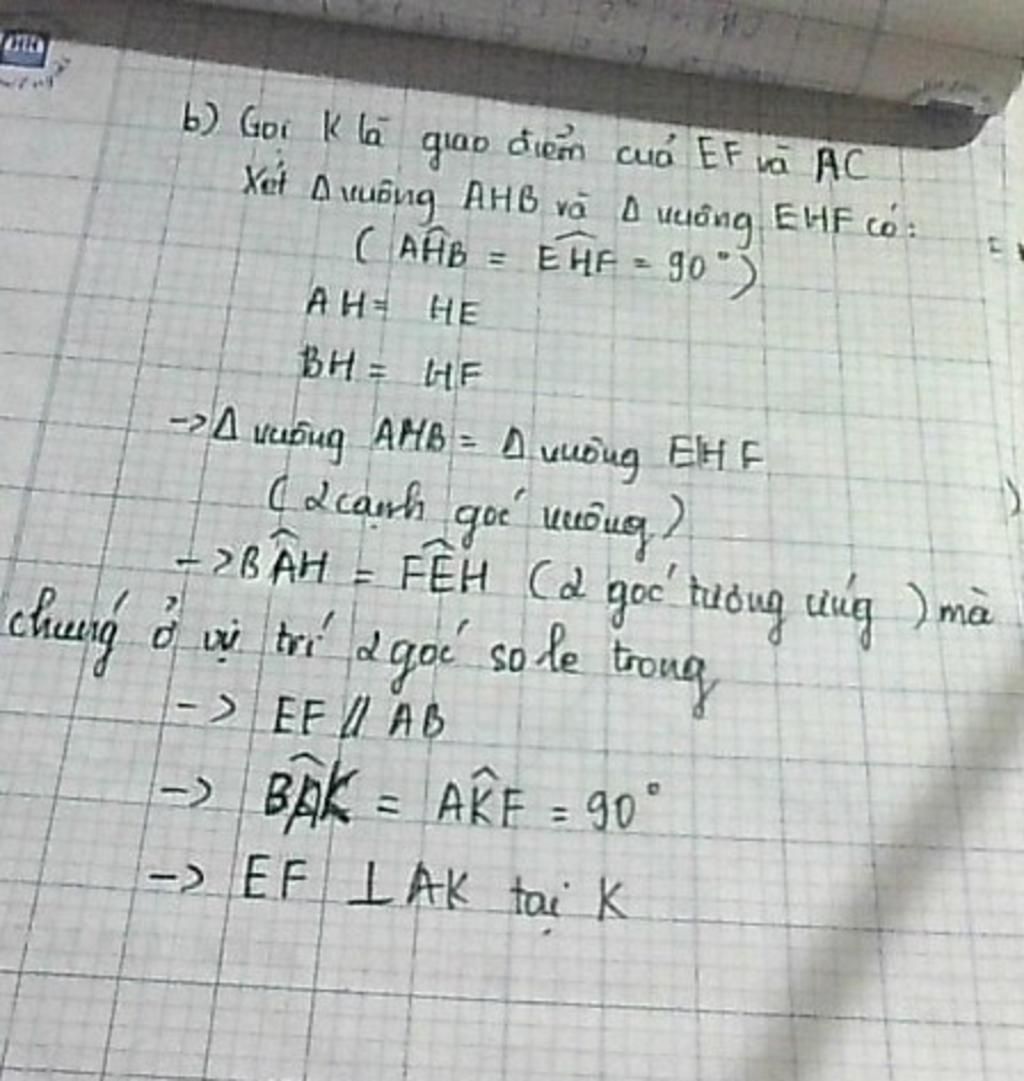 b) Gọi K là giao điểm của EF và AC
Xét Δ vuông AHB và Δ vuông EHF có:
( AĤB = EĤF = 90° )
AH = HE
BH = HF
-> Δ vuông AHB = Δ vuông EHF
( 2 cạnh góc vuông )
-> BÂH = FÊH ( 2 góc tương ứng ) mà
chúng ở vị trí 2 góc so le trong
-> EF // AB
-> BÂK = AK̂F = 90°
-> EF ⊥ AK tại K